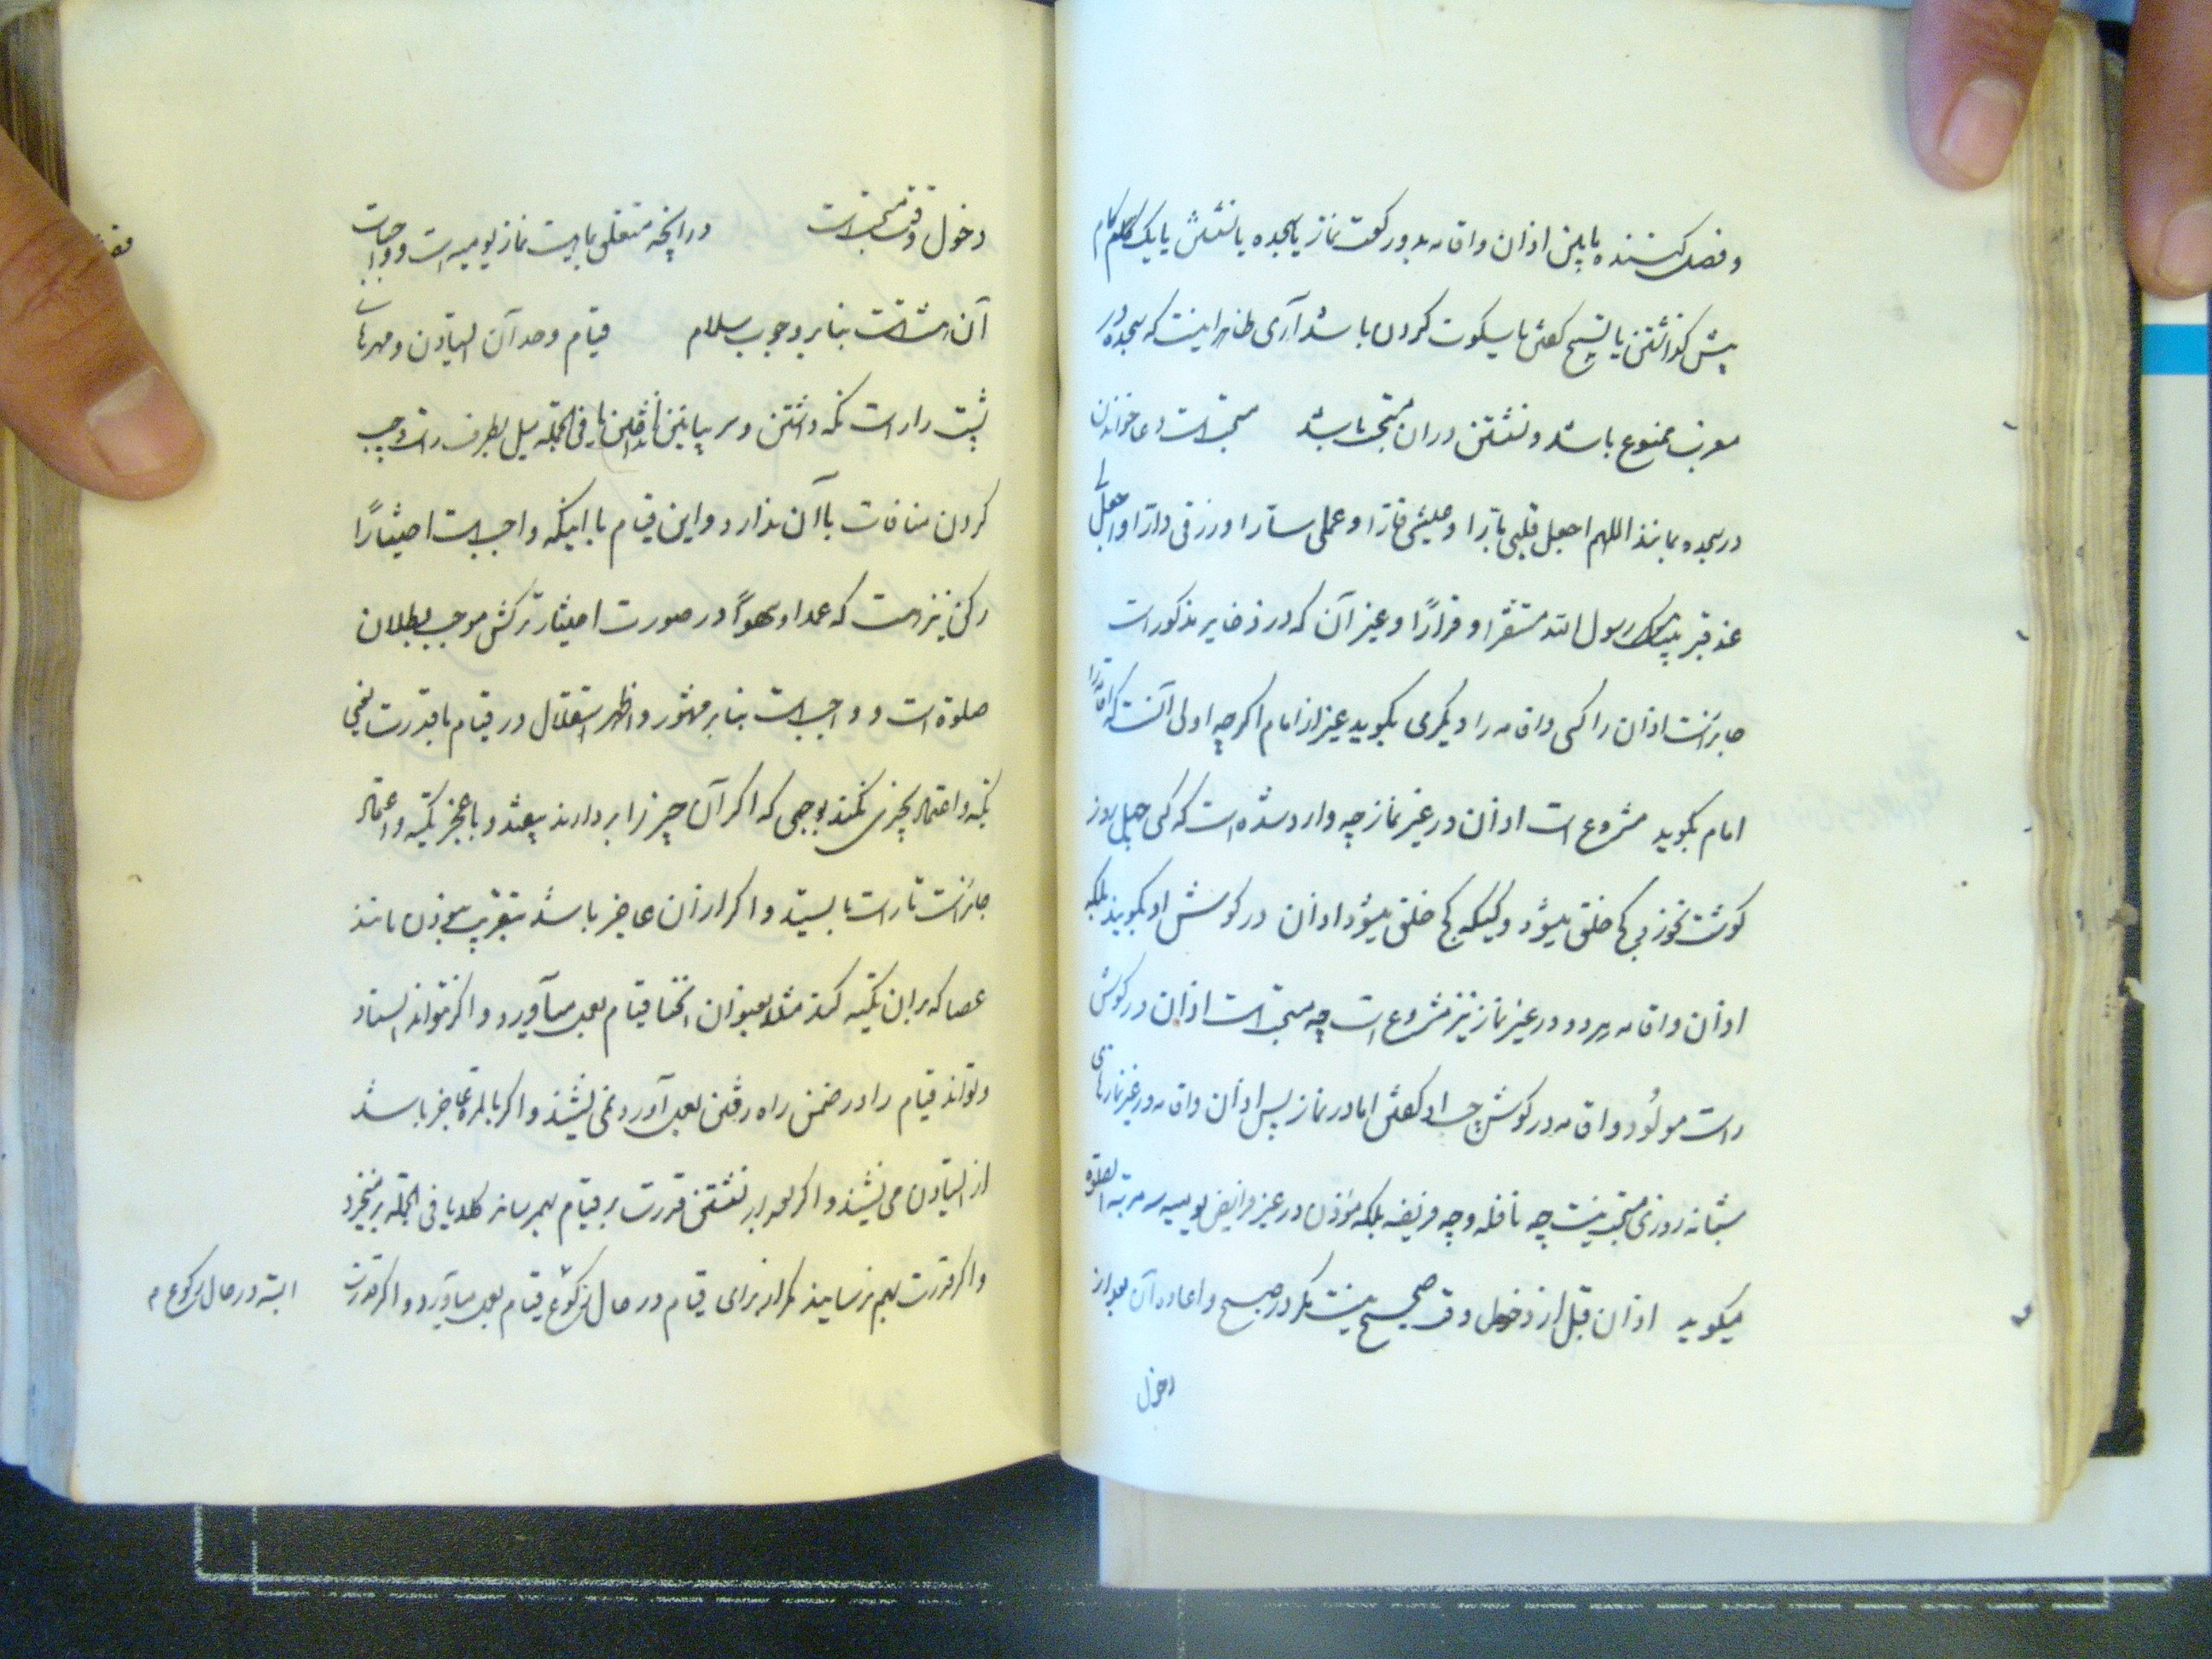 و فصل کننده مابین اذان و اقامه بدو رکعت نماز یا سجده یا نشستن یا یک کام
پیش گذاشتن یا تسبیح گفتن یا سکوت کردن باشد آری ظاهر اینست که سجده در
مغرب ممنوع باشد و نشستن در آن مستحب باشد مستحب است دعا خواندن
در سجده بمانند اللهم اجعل قلبی بارا و عیشی قارا و عملی سارا و رزقی دارا واجعل لی
عند قبر رسول الله مستقرا و قرارًا و غیر آن که در ذخایر مذکور است
جایز است اذان را کسی و اقامه را دیگری بگوید غیر از امام اگرچه اولی آنست که اقامه را
امام بگوید مشروع است اذان در غیر نماز چه وارد شده است که کسی چهل روز
گوشت نخورد کج خلق میشود و کسیکه کج خلق میشود اذان در گوش او بگویند بلکه
اذان و اقامه هردو در غیر نماز نیز مشروع است چه مستحب است اذان در گوش
راست مولُود و اقامه در گوش چپ او گفتن اما در نماز پس اذان و اقامه در غیر نمازهای
شبانه روزی مستحب نیست چه نافله و چه فریضه بلکه مؤذن در غیر فرایض یومیه سه مرتبه الصلوة
میگوید اذان قبل از دخول وقت صحیح نیست مگر در صبح و اعاده آن بعد از
دخول
دخول وقت مستحب است در آنچه متعلق بماهیت نماز یومیه است و واجبات
آن هشت است بنابر وجوب سلام قیام و حد آن ایستادن و مهرهای
پشت را راست نگه داشتن و سر پایین انداختن یا فی الجمله میل بطرف راست و چپ
کردن منافات با آن ندارد و این قیام با اینکه واجب است اختیارًا
رکن نیز هست که عمدا و سهواً در صورت اختیار ترکش موجب بطلان
صلوة است و واجب است بنابر مشهور و اظهر استقلال در قیام با قدرت یعنی
تکیه و اعتماد بچیزی نکند بوجهی که اگر آن چیز را بردارند بیفتد و با عجز تکیه و اعتماد
جایز است تا راست بایستد و اگر از آن عاجز باشد بتقریب بودن مانند
عصا که بر آن تکیه کند مثلا بعنوان انحنا قیام بعمل میآورد و اگر نتواند ایستاد
و تواند قیام را در ضمن راه رفتن بعمل آورد نمی نشیند و اگر بالمرة عاجز باشد
از ایستادن می نشیند و اگر بعد از نشستن قدرت بر قیام بهم رساند کلا یا فی الجمله برمیخیزد
و اگر قدرت بهم نرسانید مگر از برای قیام در حال رکوع قیام بعمل میآورد و اگر قدرت
البته در حال رکوع م